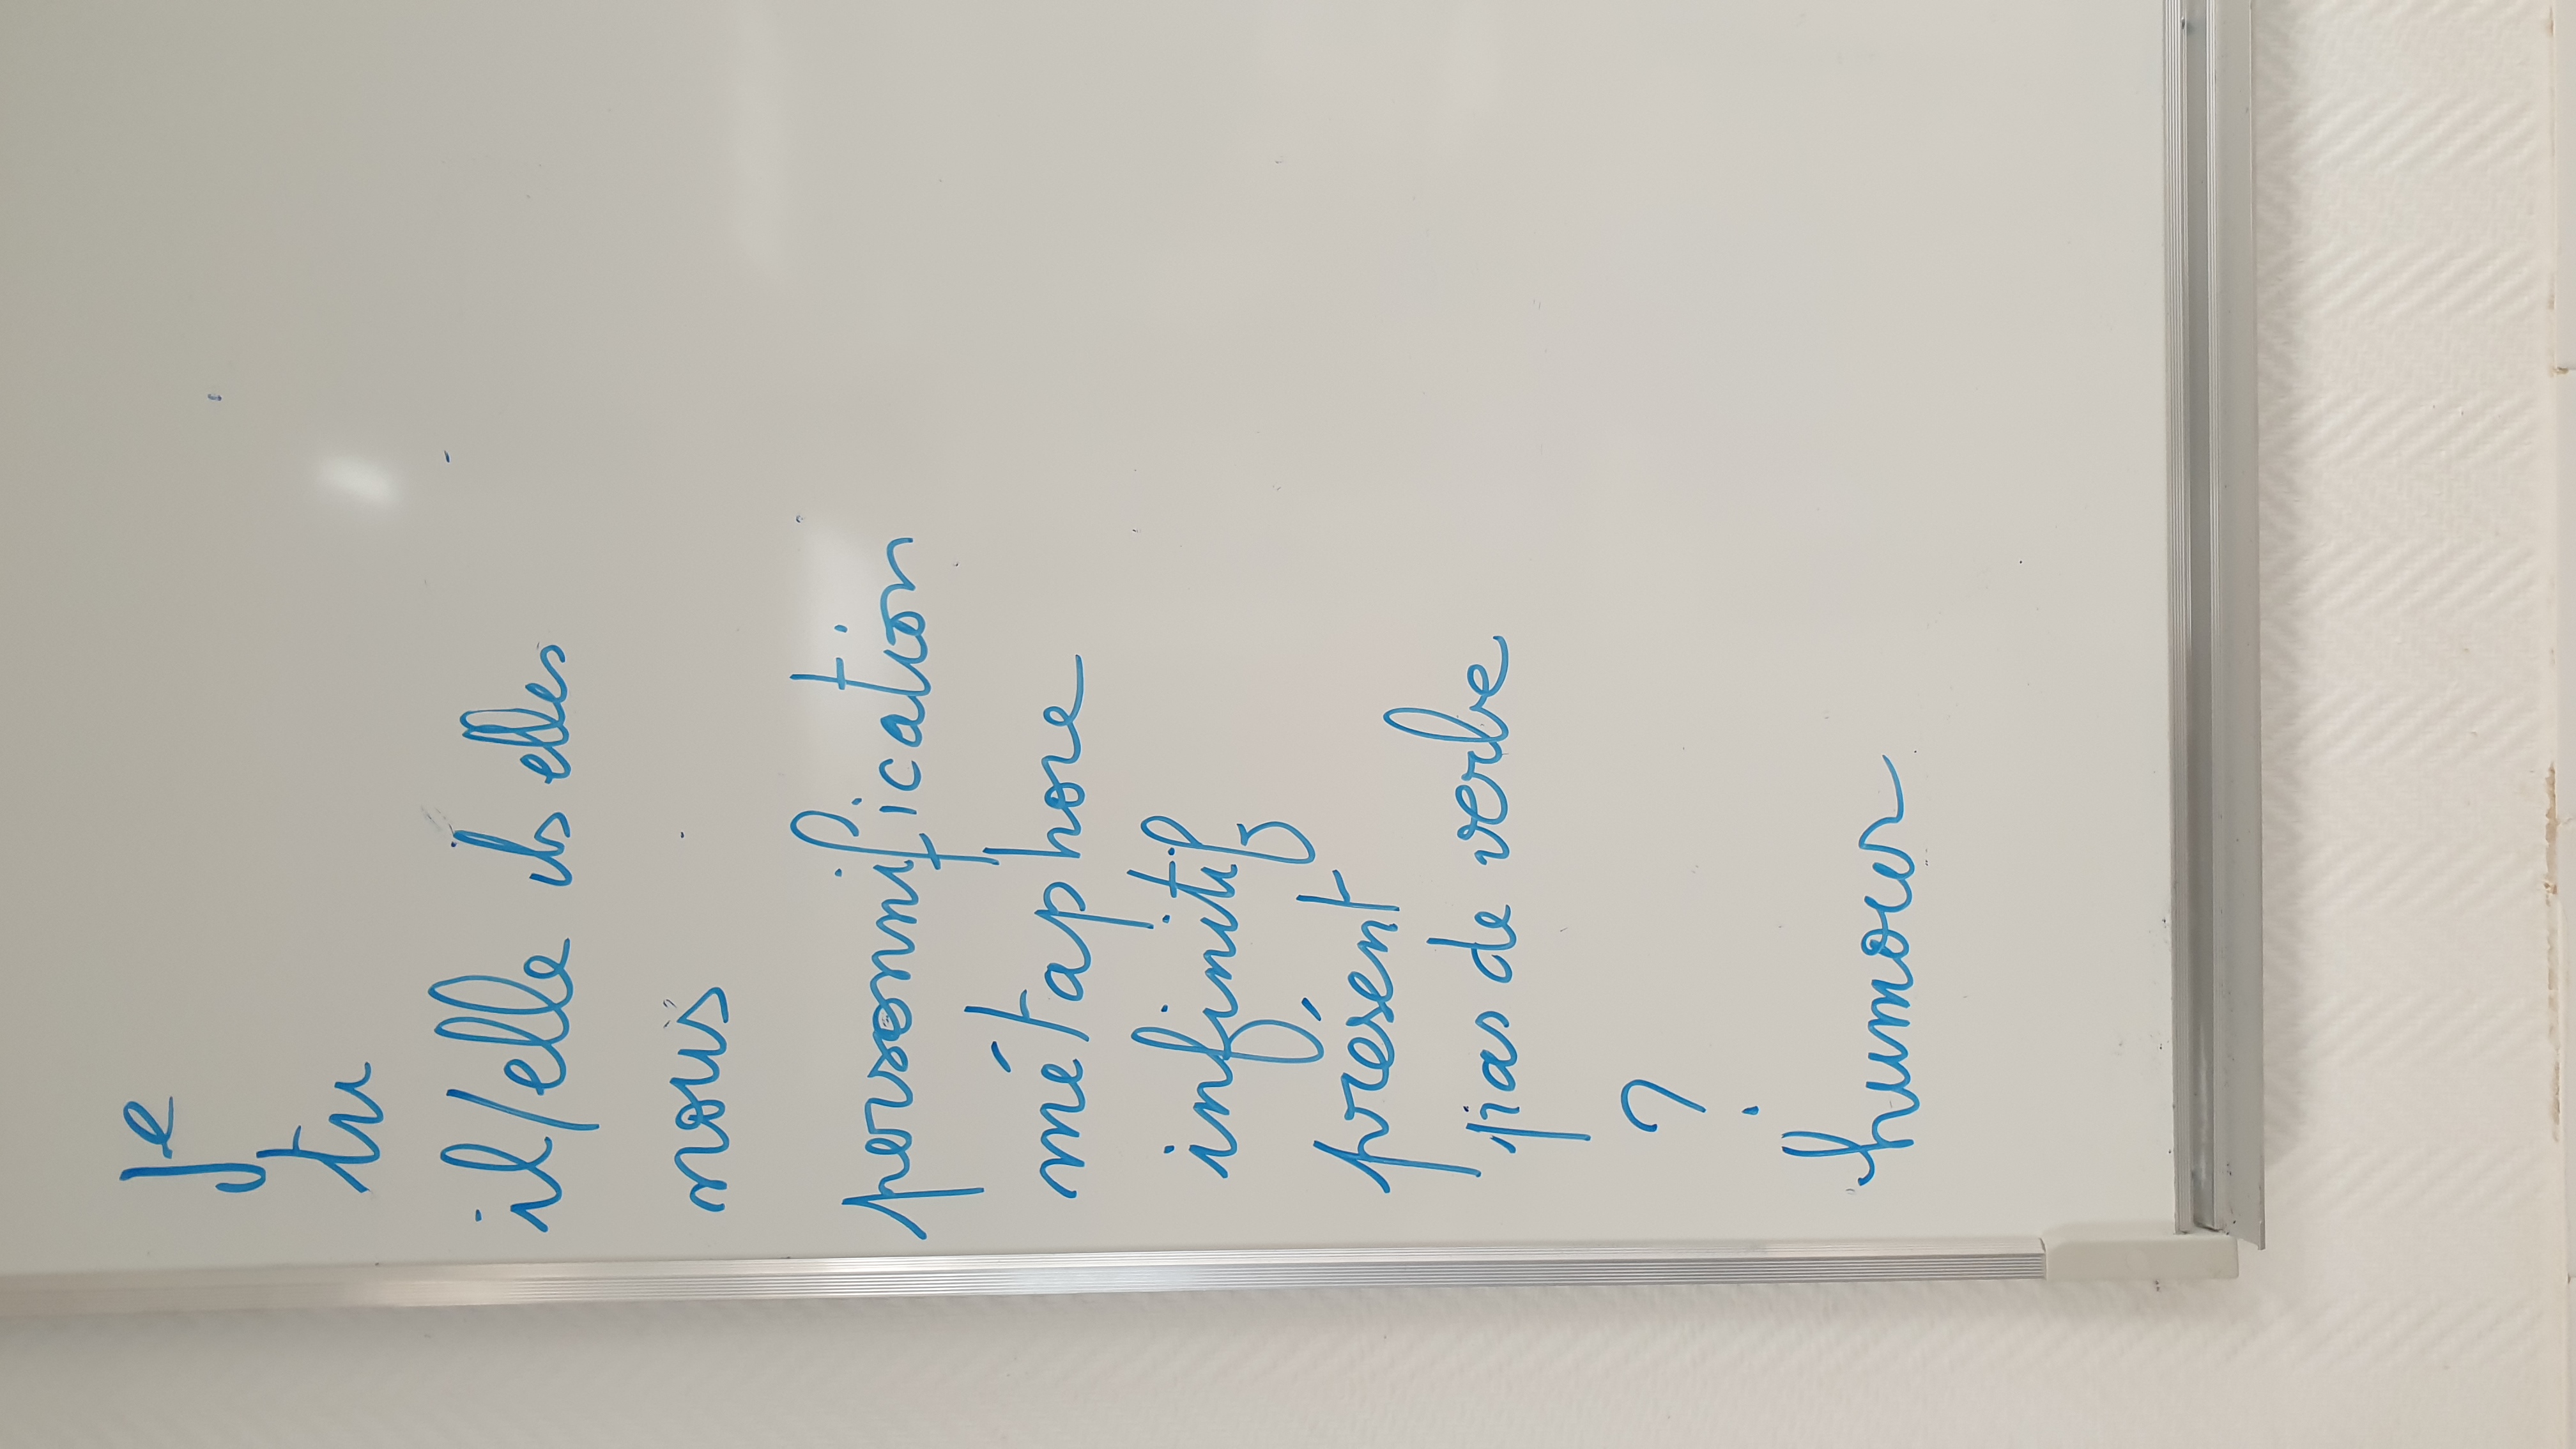 Je
tu
il/elle ils elles
nous
personnification
métaphore
infinitif
présent
pas de verbe
?
humour